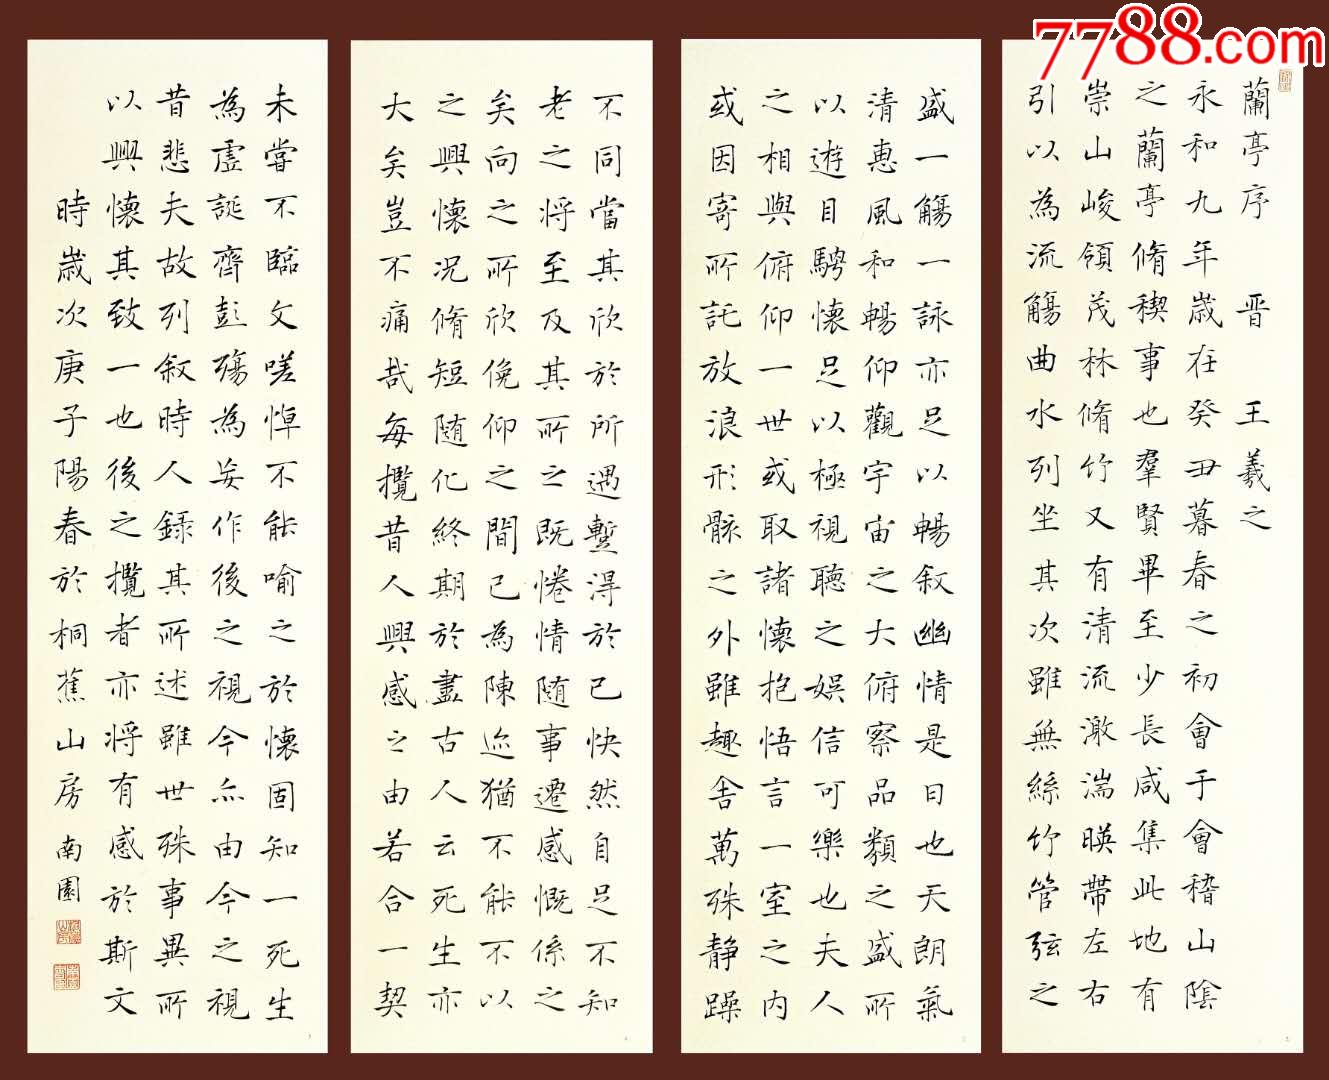 7788.com
蘭亭序 晋 王羲之
永和九年歲在癸丑暮春之初會于會稽山陰
之蘭亭脩稧事也羣賢畢至少長咸集此地有
崇山峻領茂林脩竹又有清流激湍暎帶左右
引以為流觴曲水列坐其次雖無絲竹管弦之
盛一觴一詠亦足以暢叙幽情是日也天朗氣
清惠風和暢仰觀宇宙之大俯察品類之盛所
以遊目騁懷足以極視聽之娛信可樂也夫人
之相與俯仰一世或取諸懷抱悟言一室之内
或因寄所託放浪形骸之外雖趣舍萬殊静躁
不同當其欣於所遇蹔得於己快然自足不知
老之将至及其所之既惓情随事遷感慨係之
矣向之所欣俛仰之間已為陳迹猶不能不以
之興懷况脩短随化終期於盡古人云死生亦
大矣豈不痛哉每攬昔人興感之由若合一契
未嘗不臨文嗟悼不能喻之於懷固知一死生
為虛誕齊彭殤為妄作後之視今亦由今之視
昔悲夫故列叙時人錄其所述雖世殊事異所
以興懷其致一也後之攬者亦将有感於斯文
時歲次庚子陽春於桐蕉山房 南園